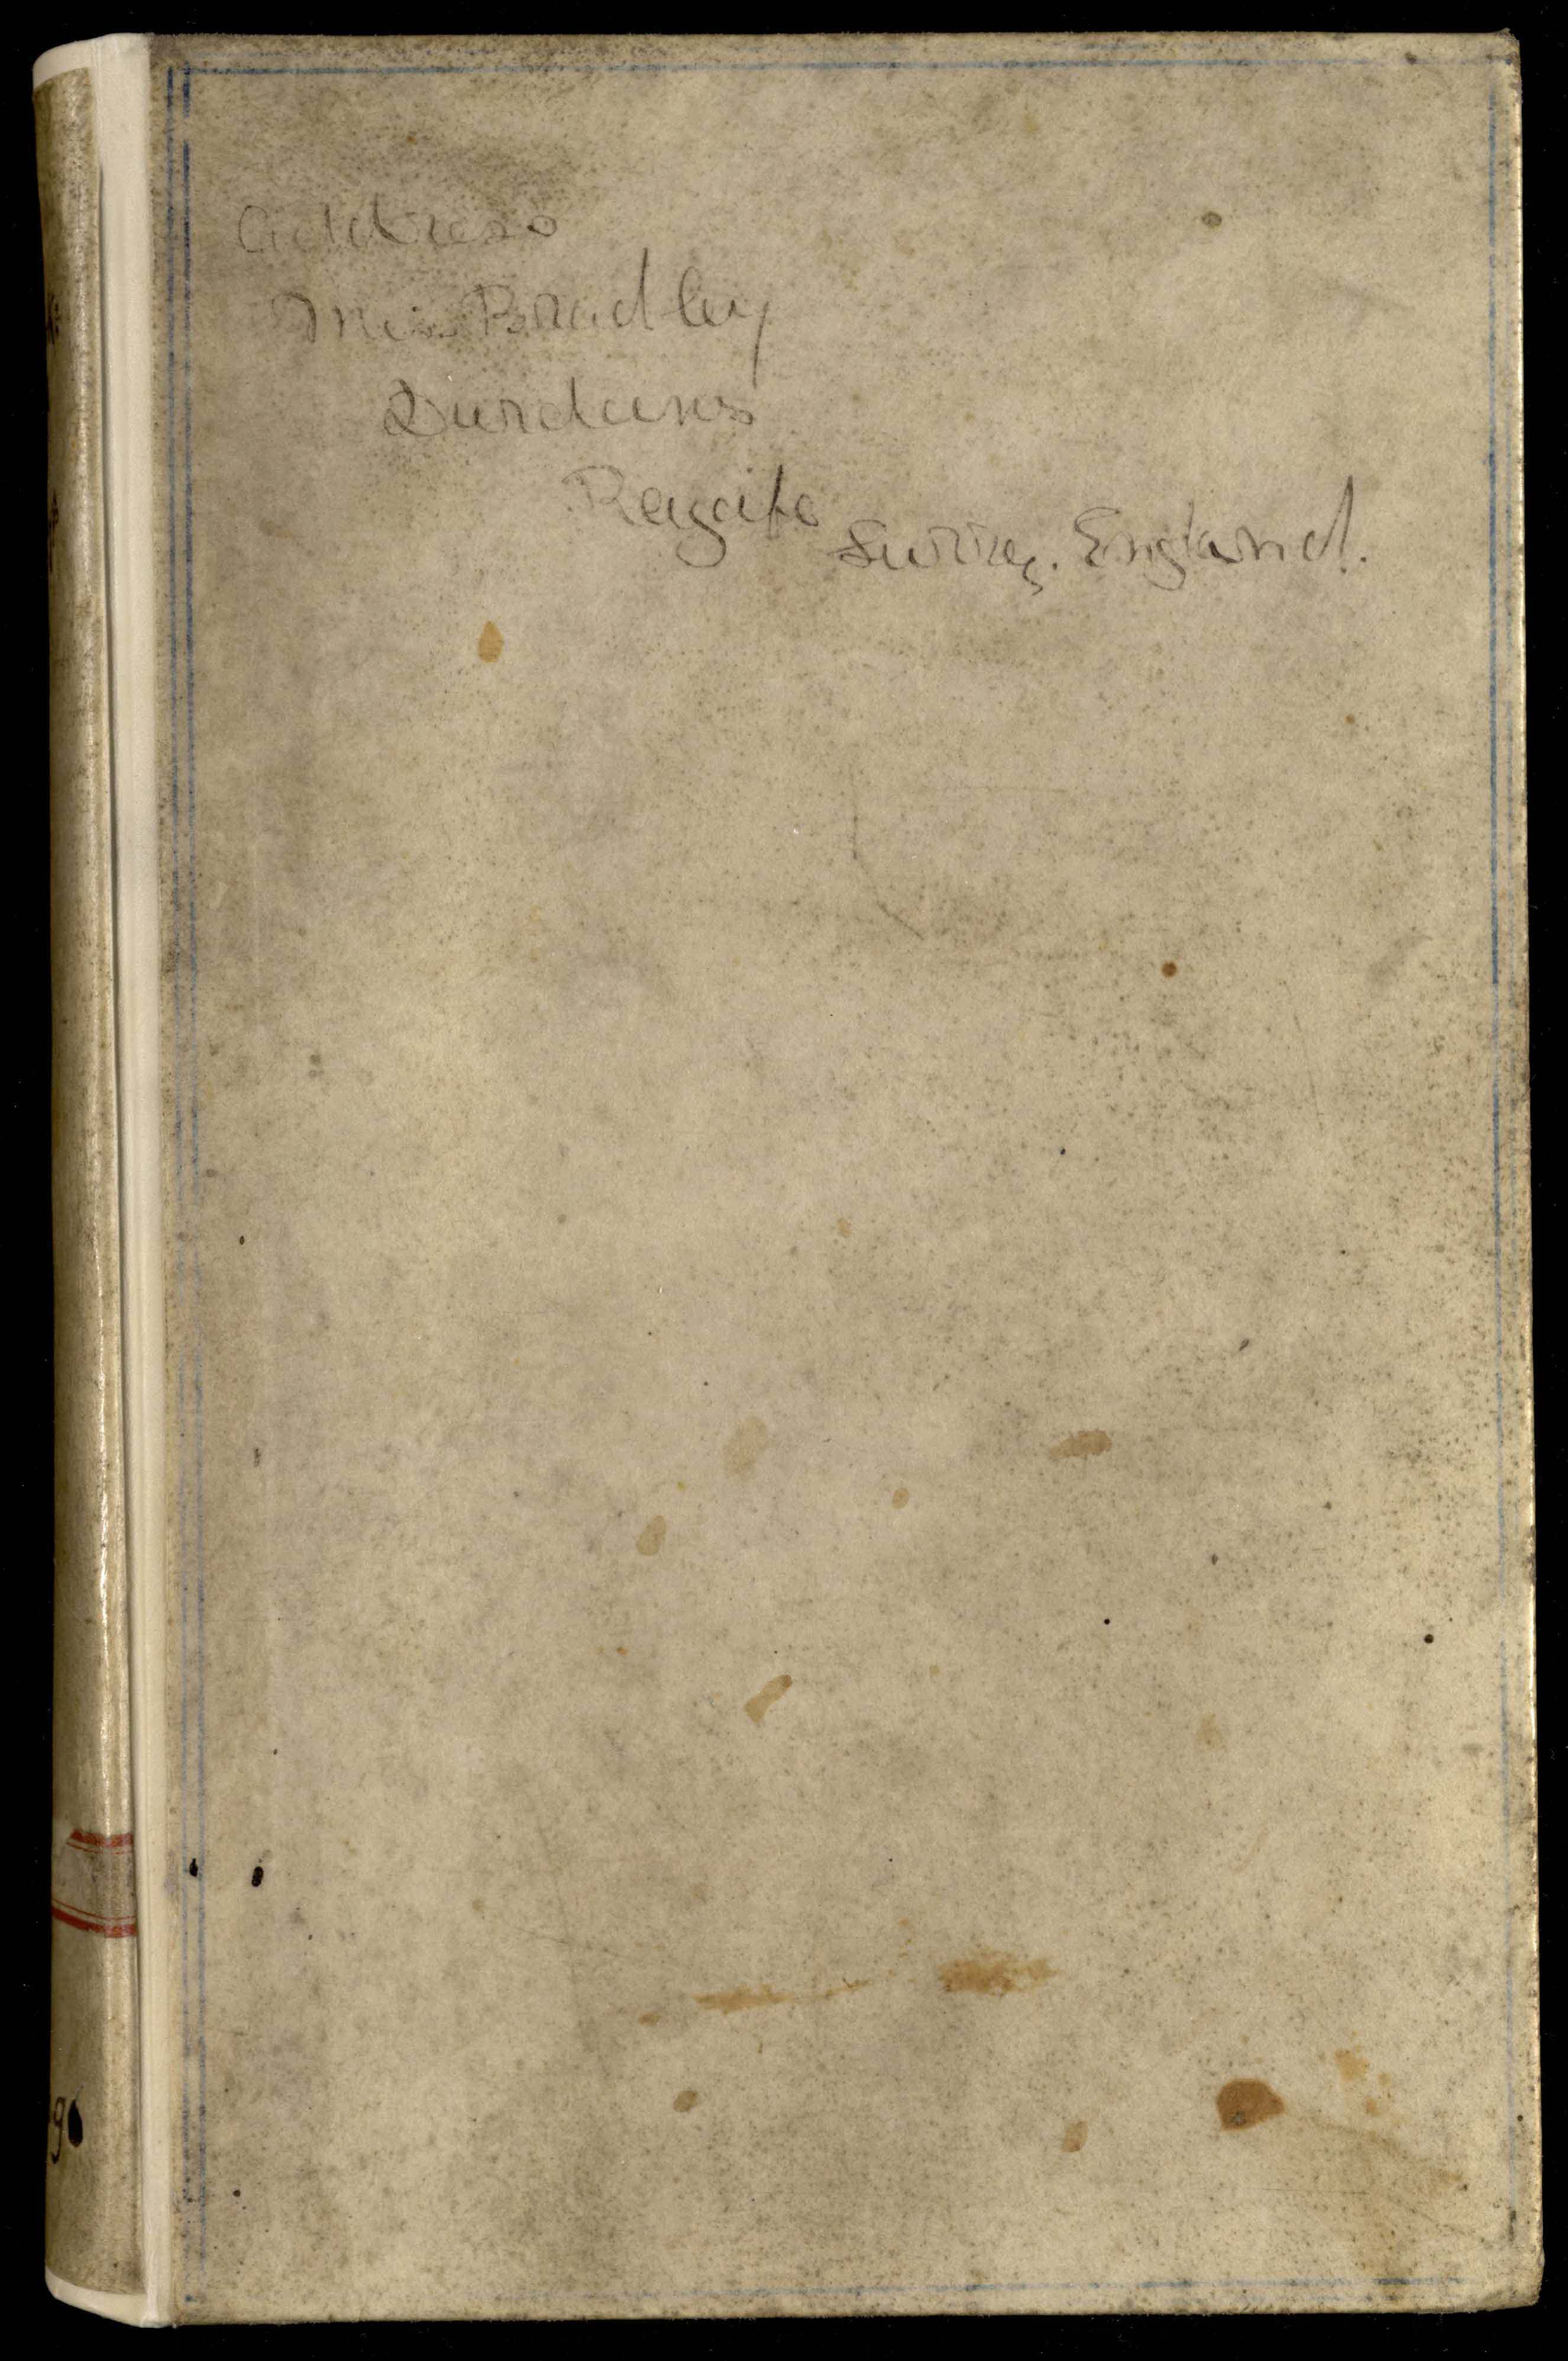 Address
Miss Bradley
Durdans
Reigate
Surrey. England.
9